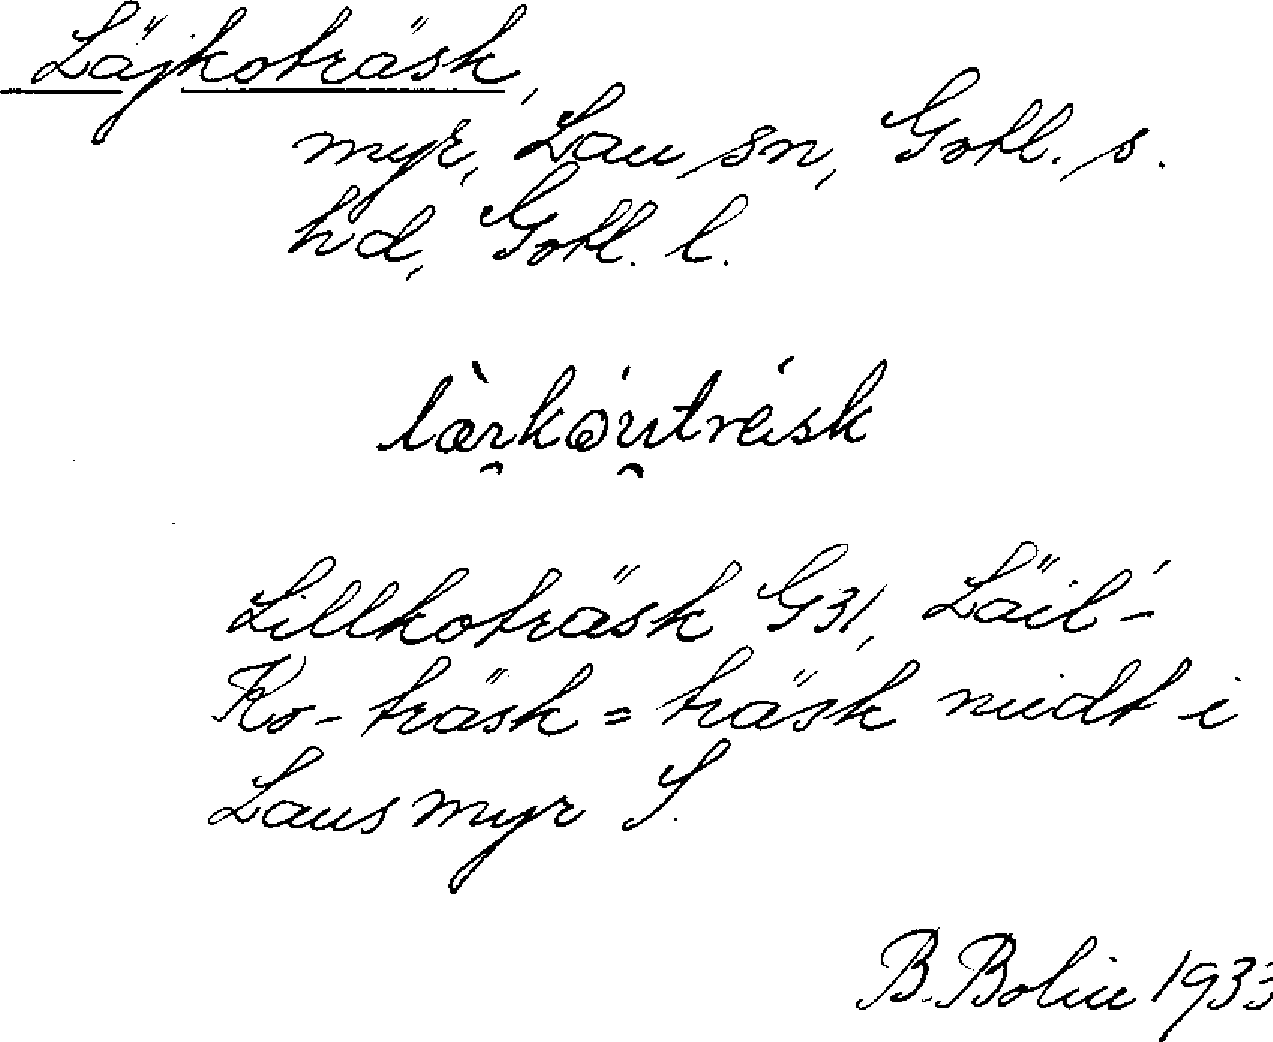 Läjkoträsk,
myr, Lau sn, Gotl. s.
hd, Gotl. l.
Lillkoträsk G31, Läil-
Ko-träsk = träsk midt i
Laus myr S.
B. Bolin 1933